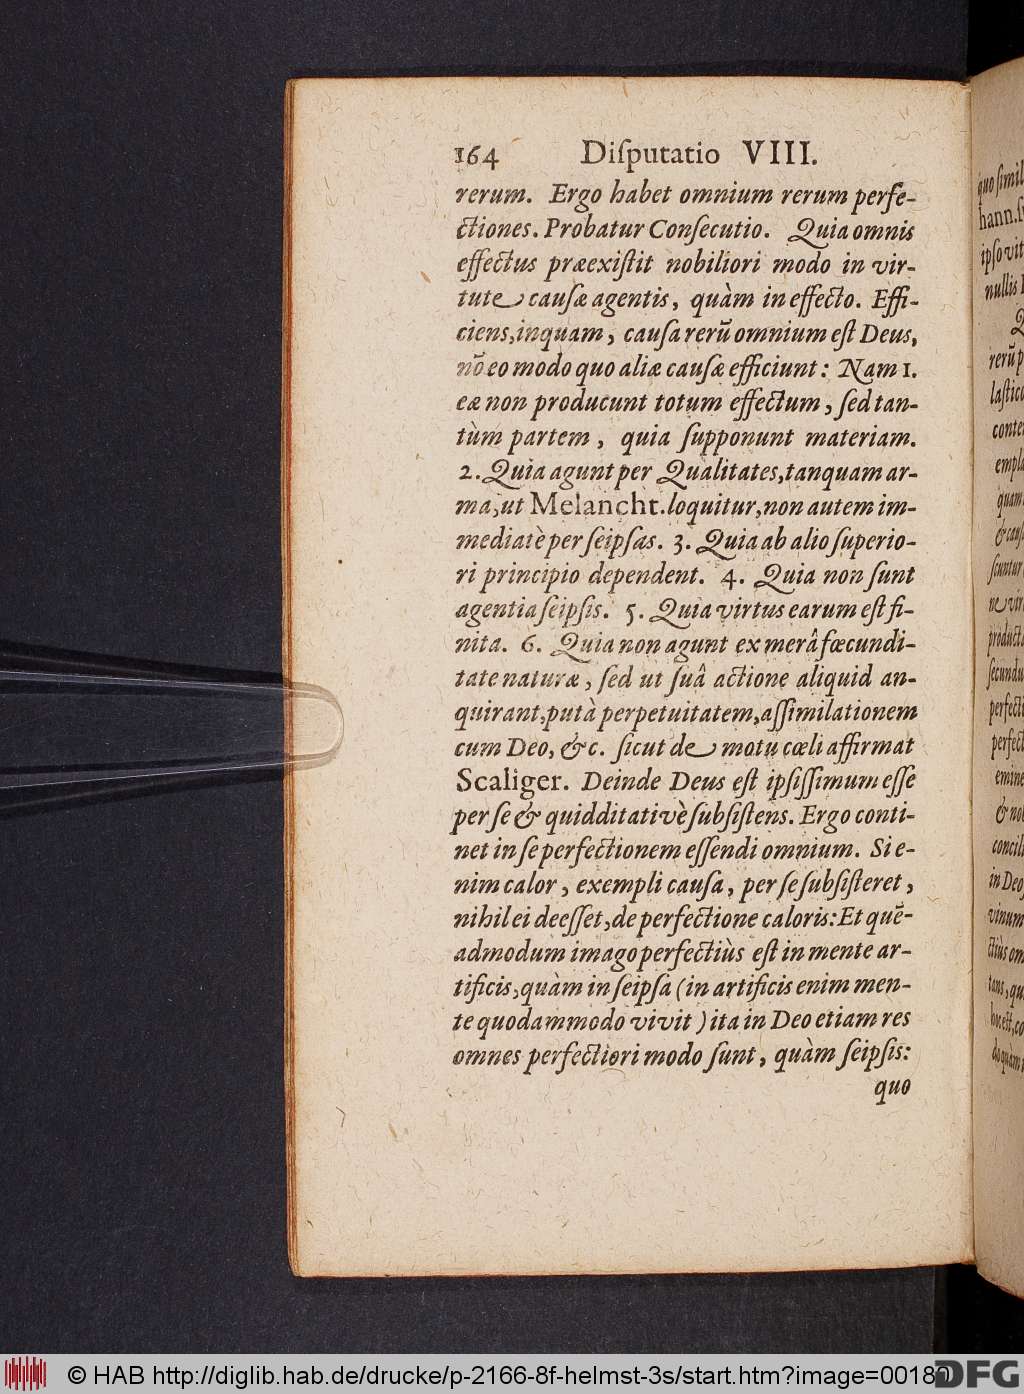 164 Diſputatio VIII.
rerum. Ergo habet omnium rerum perfe-
ctiones. Probatur Conſecutio. Quia omnis
effectus præexiſtit nobiliori modo in vir-
tute cauſæ agentis, quàm in effecto. Effi-
ciens, inquam, cauſa rerū omnium eſt Deus,
nō eo modo quo aliæ cauſæ efficiunt: Nam 1.
eæ non producunt totum effectum, ſed tan-
tùm partem, quia ſupponunt materiam.
2. Quia agunt per Qualitates, tanquam ar-
ma, ut Melancht. loquitur, non autem im-
mediatè per ſeipſas. 3. Quia ab alio ſuperio-
ri principio dependent. 4. Quia non ſunt
agentia ſeipſis. 5. Quia virtus earum eſt fi-
nita. 6. Quia non agunt ex merâ fœcundi-
tate naturæ, ſed ut ſuâ actione aliquid an-
quirant, putà perpetuitatem, aſſimilationem
cum Deo, &c. ſicut de motu cœli affirmat
Scaliger. Deinde Deus eſt ipſiſſimum eſſe
per ſe & quidditativè ſubſiſtens. Ergo conti-
net in ſe perfectionem eſſendi omnium. Si e-
nim calor, exempli cauſa, per ſe ſubſiſteret,
nihil ei deeſſet, de perfectione caloris: Et quē-
admodum imago perfectiùs eſt in mente ar-
tificis, quàm in ſeipſâ (in artificis enim men-
te quodammodo vivit) ita in Deo etiam res
omnes perfectiori modo ſunt, quàm ſeipſis:
quo
quo ſimil
hann.
ipſo vit
nullis
rerū p
laſtic
conte
empla
quam
& cauſ
ſcuntur
ne vir
product
ſecundu
perfecti
perfect
emine
& nob
concili
in Deo
vinum
ctiùs om
tans, qu
hoc eſt, co
do quàm
© HAB http://diglib.hab.de/drucke/p-2166-8f-helmst-3s/start.htm?image=00180
DFG